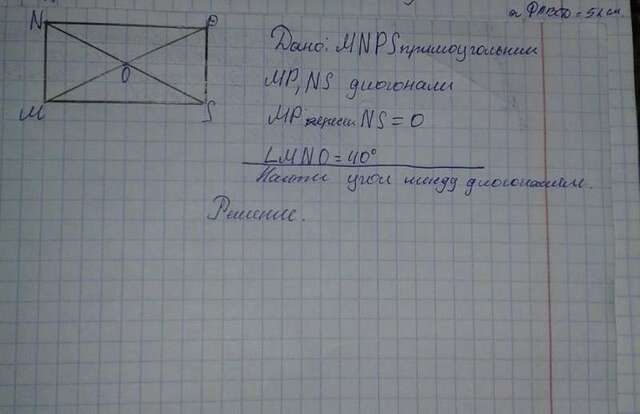 а PABCD = 52 см.
N P
Дано: MNPS прямоугольник
O
MP, NS диогонали
M S
MP пересек NS = O
∠MNO = 40°
Найти угол между диогоналями.
Решение.